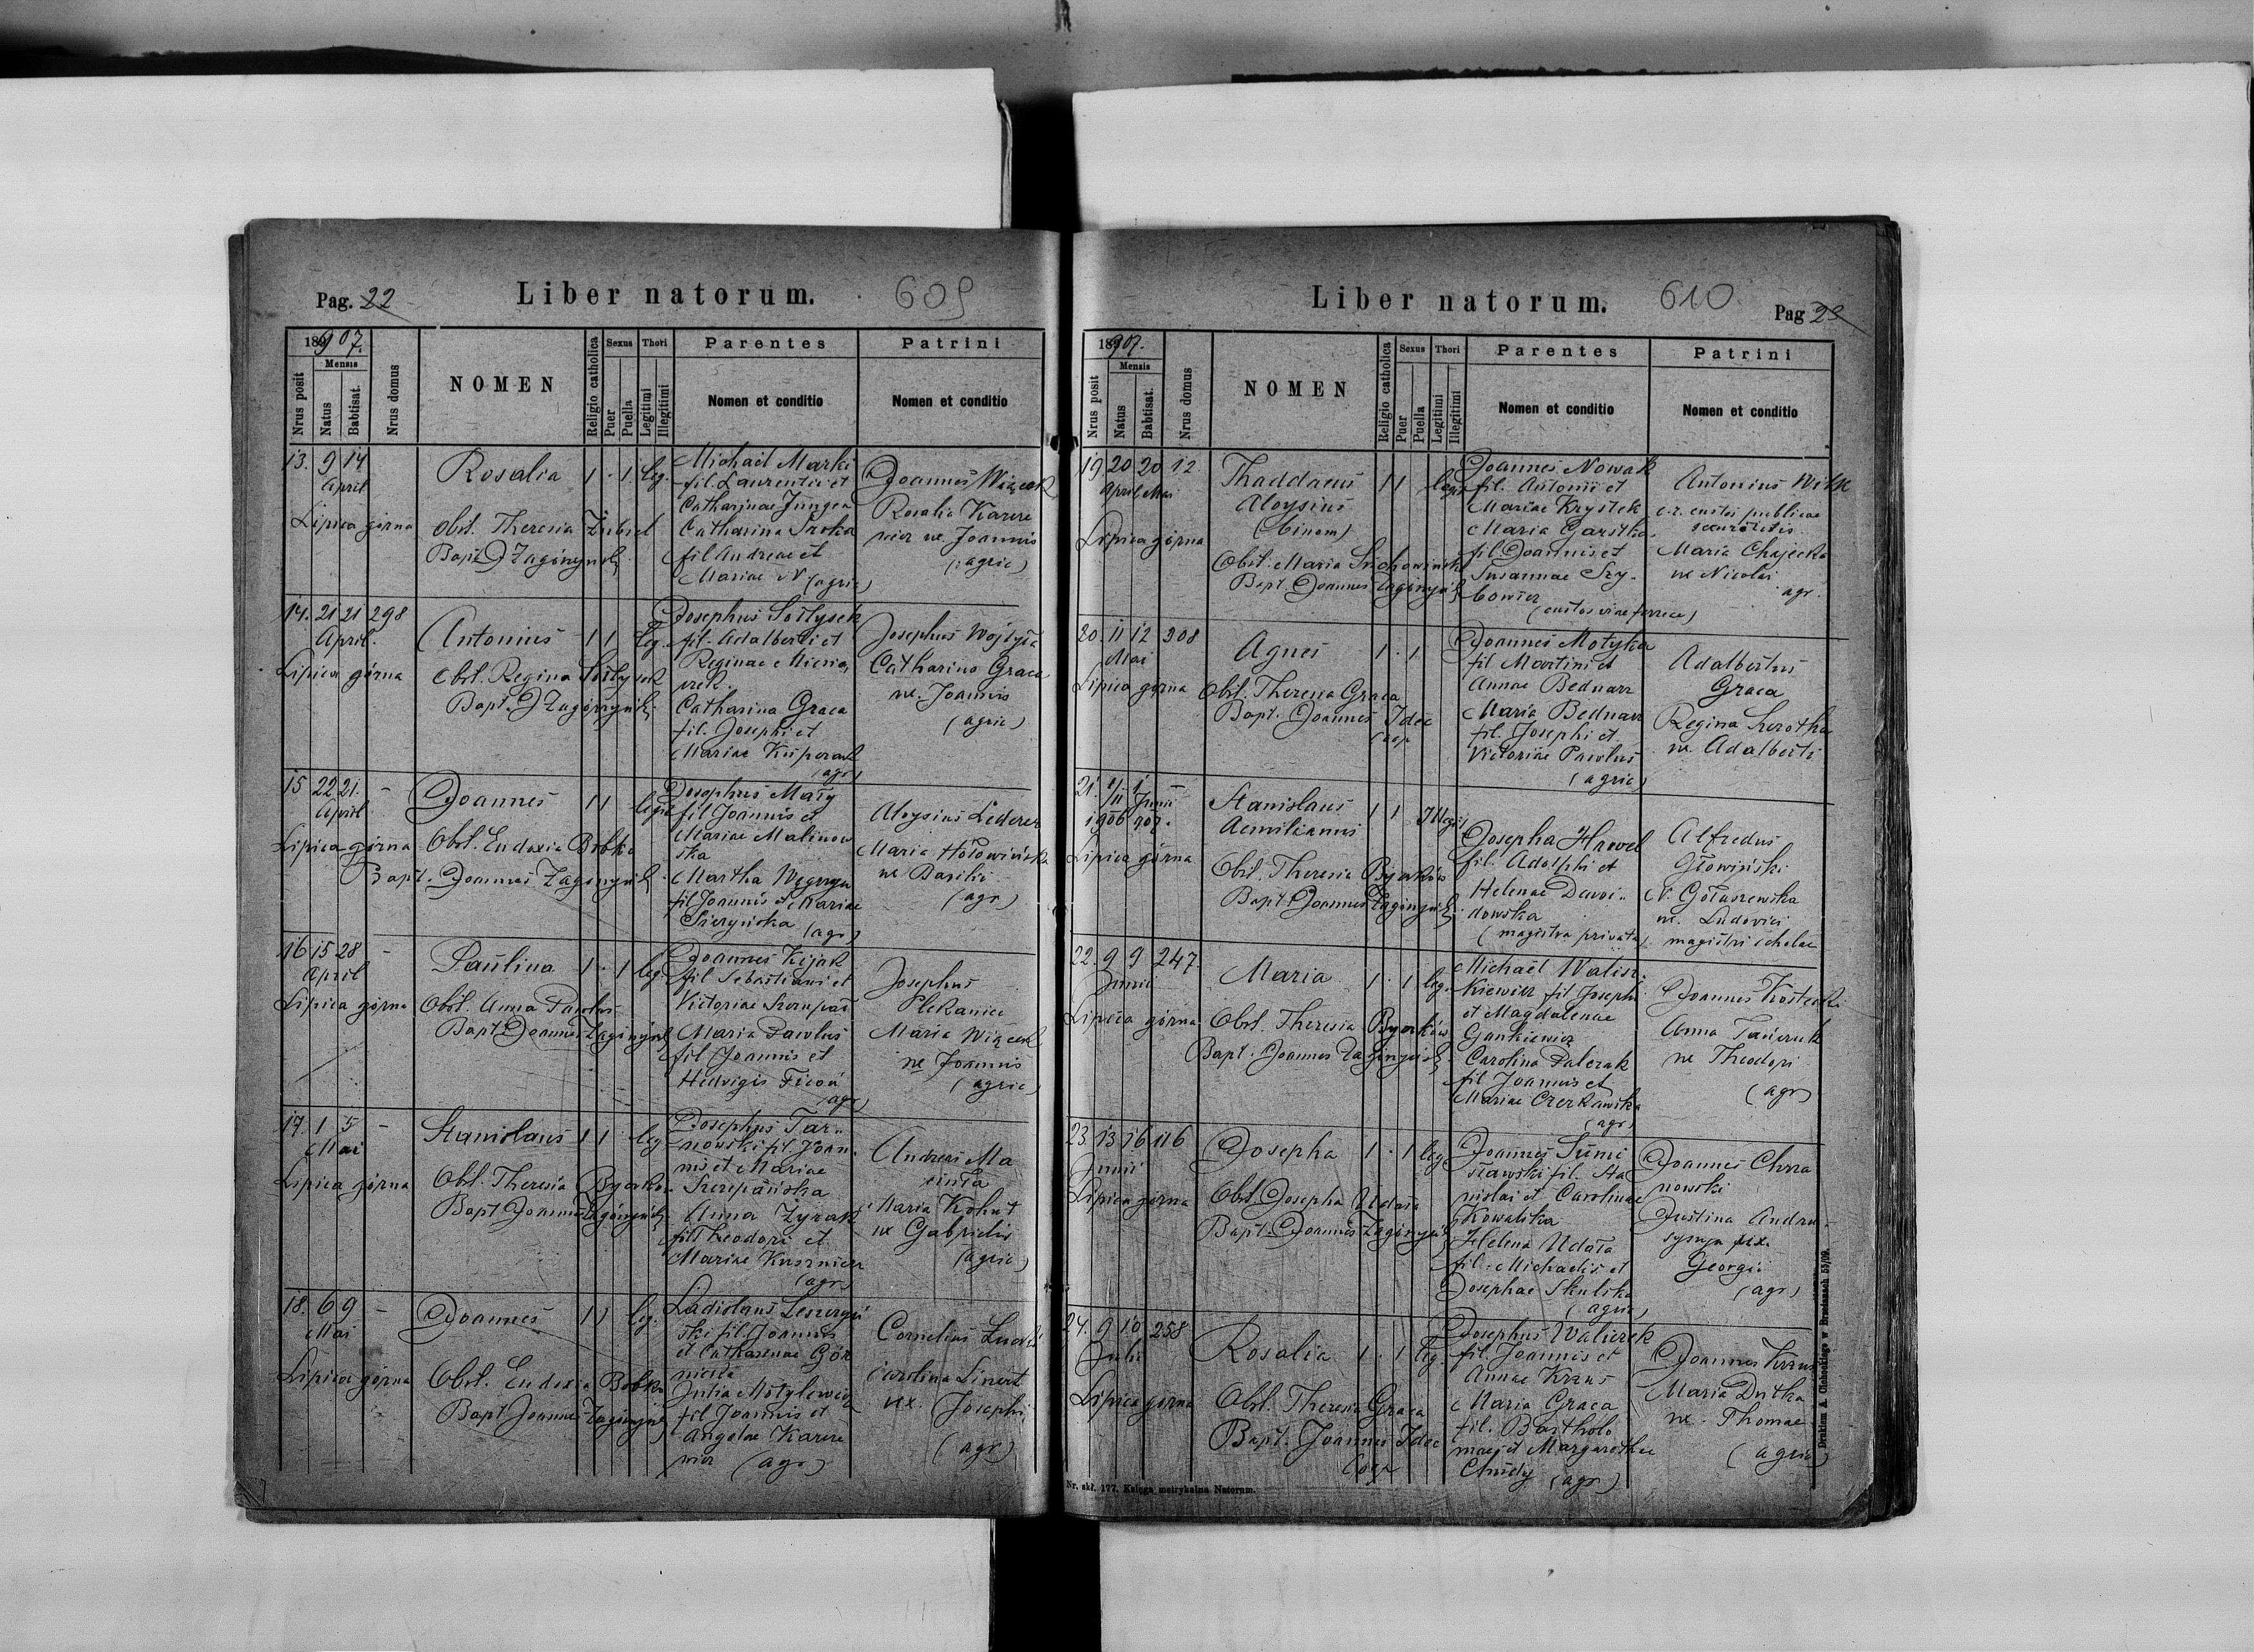 Pag. 22
Liber natorum.
609
1907.
Mensis
Nrus posit
Natus
Babtisat.
Nrus domus
NOMEN
Religio catholica
Sexus
Puer
Puella
Thori
Legitimi
Illegitimi
Parentes
Nomen et conditio
Patrini
Nomen et conditio
13. 9 14
April
Lipica górna
Rosalia 1 · 1 leg.
Obst. Theresia
Bapt. J Zagórzyński
Michael Marki
fil. Laurentii et
Catharinae
Catharina Sroka
fil Andreae et
Mariae N (agric)
Joannes Wiącek
Rosalia
ux. Joannis
(agric)
14. 21 21 298
April.
Lipica górna
Antonius 1 1 leg.
Obst. Regina Sołtysek
Bapt. J Zagórzyński
Josephus Sołtysek
fil. Adalberti et
Reginae
Catharina Graca
fil. Josephi et
Mariae
(agr)
Josephus Wojtyła
Catharina Graca
ux. Joannis
(agric)
15 22 21. -
April
Lipica górna
Joannes 1 1 legit
Obst. Eudoxia Bobko
Bapt. Joannes Zagórzyński
Josephus Mały
fil Joannis et
Mariae Malinow
ska
Martha Węgrzyn
fil Joannis et Mariae
(agr)
Aloysius Lederer
Maria
ux Basilii
(agr)
16 15 28 -
April
Lipica górna
Paulina 1 · 1 leg.
Obst. Anna Pawlus
Bapt. Joannes Zagórzyński
Joannes Kijak
fil Sebastiani et
Victoriae
Maria Pawlus
fil Joannis et
Hedvigis Ficoń
(agr)
Josephus
Plekaniec
Maria Wiącek
ux Joannis
(agric)
17. 1 5 -
Mai
Lipica górna
Stanislaus 1 1 leg
Obst. Theresia
Bapt Joannes Zagórzyński
Josephus Tar-
nowski fil. Joan-
nis et Mariae
Szczepańska
Anna Żyrak
fil Theodori et
Mariae Kusznier
(agr)
Andreas Ma
Maria Kohut
ux Gabrielis
(agric)
18. 6 9 -
Mai
Lipica górna
Joannes 1 1 leg.
Obst. Eudoxia Bobko
Bapt Joannes Zagórzyński
Ladislaus Leszczyń
ski fil. Joannis
et Catharinae Gór
Julia Motylewicz
fil Joannis et
Angelae
(agr)
Cornelius
Carolina Linert
ux. Josephi
(agr)
Liber natorum.
610
Pag 23
1907.
Mensis
Nrus posit
Natus
Babtisat.
Nrus domus
NOMEN
Religio catholica
Sexus
Puer
Puella
Thori
Legitimi
Illegitimi
Parentes
Nomen et conditio
Patrini
Nomen et conditio
19. 20 20 12
April Mai
Lipica górna
Thaddaeus
Aloysius
(binom)
1 1 legit
Obst. Maria
Bapt. Joannes Zagórzyński
Joannes Nowak
fil. Antonii et
Mariae Krystek
Maria Garstka
fil. Joannis et
Susannae Szy-
bowicz
(custos viae ferreae)
Antonius Wilk
c.r. custos publicae
securitatis
Maria Chajecka
ux Nicolai
agr.
20. 11 12 308
Mai
Lipica górna
Agnes 1 · 1
Obst. Theresia Graca
Bapt. Joannes Idec
Coop
Joannes Motyka
fil Martini et
Annae Bednarz
Maria Bednarz
fil. Josephi et
Victoriae Pawlus
(agric)
Adalbertus
Graca
Regina
ux. Adalberti
21. 1 -
11 Junii
1906 907.
Lipica górna
Stanislaus
Aemilianus
1 1 Illegit
Obst. Theresia
Bapt. Joannes Zagórzyński
Josepha
fil. Adolphi et
Helenae Dawi-
dowska
(magistra privata)
Alfredus
Głowiński
N. Gołaszewska
ux. Ludovici
magistri scholae
22. 9 9 247.
Junii
Lipica górna
Maria 1 · 1 leg.
Obst. Theresia
Bapt. Joannes Zagórzyński
Michaël Walisz-
kiewicz fil Josephi
et Magdalenae
Gankiewicz
Carolina Palczak
fil Joannis et
Mariae Czerkawska
(agr)
Joannes Kostecki
Anna
ux Theodori
(agr)
23. 13 16 116
Junii
Lipica górna
Josepha 1 · 1 leg
Obst. Josepha Udała
Bapt. Joannes Zagórzyński
Joannes Sumi
sławski fil. Sta
nislai et Carolinae
Kowalska
Helena Udała
fil. Michaelis et
Josephae Skulska
(agric)
Joannes Chrza
nowski
Justina Andru-
ux.
Georgii
(agr)
24. 9 10 258
Julii
Lipica górna
Rosalia 1 · 1 leg.
Obst. Theresia Graca
Bapt. Joannes Idec
Coop
Josephus Walurek
fil. Joannis et
Annae Kraus
Maria Graca
fil. Bartholo
maei et Margarethae
Chudy (agr)
Joannes Kraus
Maria Dutka
ux. Thomae
(agric)
Nr. skł. 177. Księga metrykalna Natorum.
Drukiem A. Glebockiego w Brzeżanach 55/09.